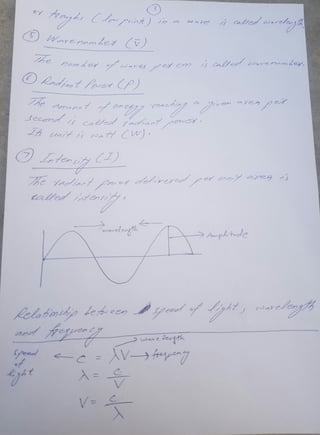 3
or troughs (low point) in a wave is called wavelength
⑤ Wavenumber (ν̅)
The number of waves per cm is called wavenumber.
⑥ Radiant Power (P)
The amount of energy reaching a given area per
second is called radiant power.
Its unit is watt (W).
⑦ Intensity (I)
The radiant power delivered per unit area is
called intensity.
wavelength
Amplitude
Relationship between speed of light, wavelength
and frequency
wavelength
speed of light ← C = λV → frequency
λ = C/V
V = C/λ